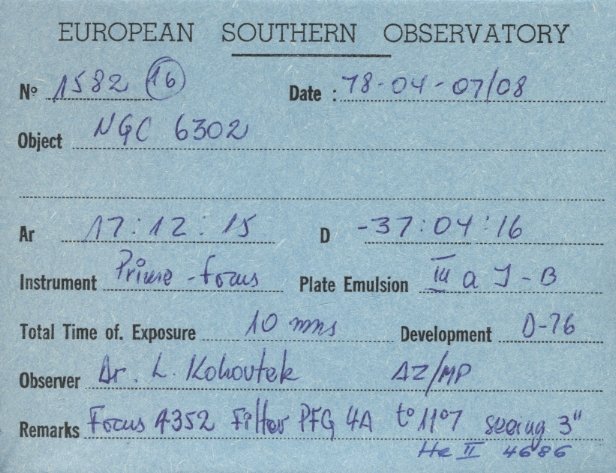 EUROPEAN SOUTHERN OBSERVATORY
Nº 1582 (16) Date : 78-04-07/08
Object NGC 6302
Ar 17:12:15 D -37:04:16
Instrument Prime-focus Plate Emulsion III a J-B
Total Time of. Exposure 10 mns Development D-76
Observer Dr. L. Kohoutek AZ/MP
Remarks Focus 4352 Filter PFG 4A t° 11°7 seeing 3"
He II 4686